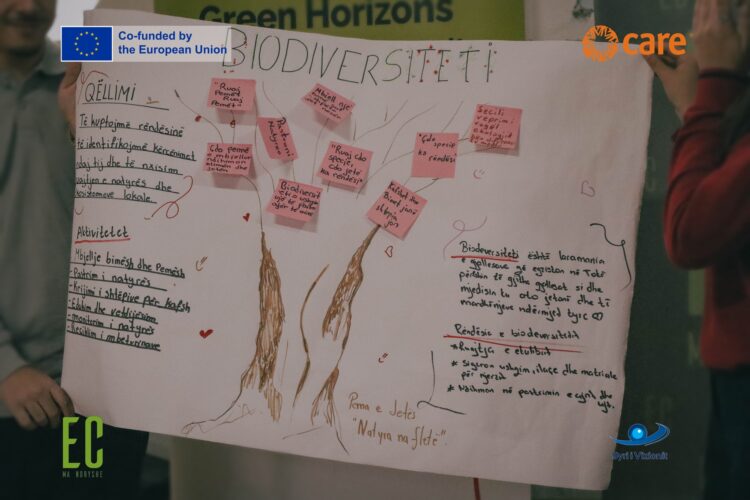 Co-funded by
the European Union
Green Horizons
care
BIODIVERSITETI
QËLLIMI
Të kuptojmë rëndësinë
të identifikojmë kërcënimet
ndaj tij dhe të nxisim
ruajtjen e natyrës dhe
ekosistemeve lokale.
Aktivitetet
Mbjellje bimësh dhe Pemësh
- Pastrimi i natyrës
- Krijimi i shtëpive për kafsh
- Edukim dhe vetëdijësim
- monitorim i natyrës
- Reciklim i mbeturinave
"Ruaj
Pemët
Ruaj
Çdo pemë
"Ruaj çdo
specie,
çdo jetë
ka rëndësi"
Biodiversit
"Çdo
specie
ka rëndësi
Secili
veprim
shtëpia
jon
Biodiversiteti është laramania
e gjallesave që egziston në Tokë
përfshin të gjitha gjallesat si dhe
mjedisin ku ato jetojnë dhe të
marrëdhënjeve ndërmjet tyre
Rëndësia e biodiversitetit
* Ruajtja e
* Siguron ushqim, ilaçe dhe materiale
për njerzit
* Ndihmon në pastrimin e ajrit dhe
ujit.
Pema e Jetës
"Natyra na fletë".
EC
MA NDRYSHE
Syri i Vizionit